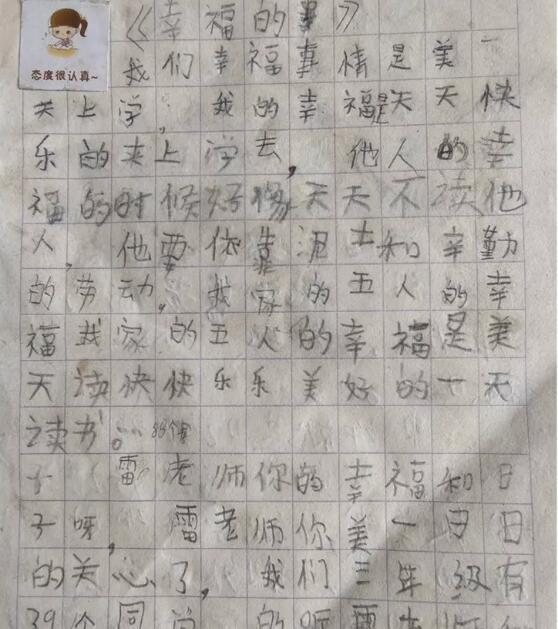 《幸福的事》
态度很认真~
我们幸福事情是美一
天上学，我的幸福是天天快
乐的来上学去，他人的幸
福的时候好像天天不读他
人，他要依靠泥土和辛勤
的劳动，我家的五人的幸
福我家的五人的幸福是美
天读快快乐乐美好的一天
读书。88个字
雷老师你的幸福和日
子呀，雷老师你美一日日
的关心了，我们三年级有
39个同学的